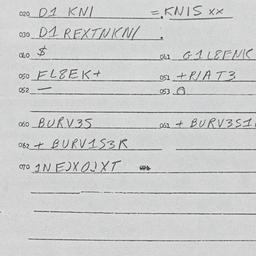 020 D1 KNI = KNIS xx
030 D1 REXTNKN/ .
040 $ 041 G1L8FNK
050 FL8EK+ 051 +R/AT3
052 — 053
060 BURV3S 061 + BURV3S1
062 + BURV1S3R
070 1NE)XO)XT